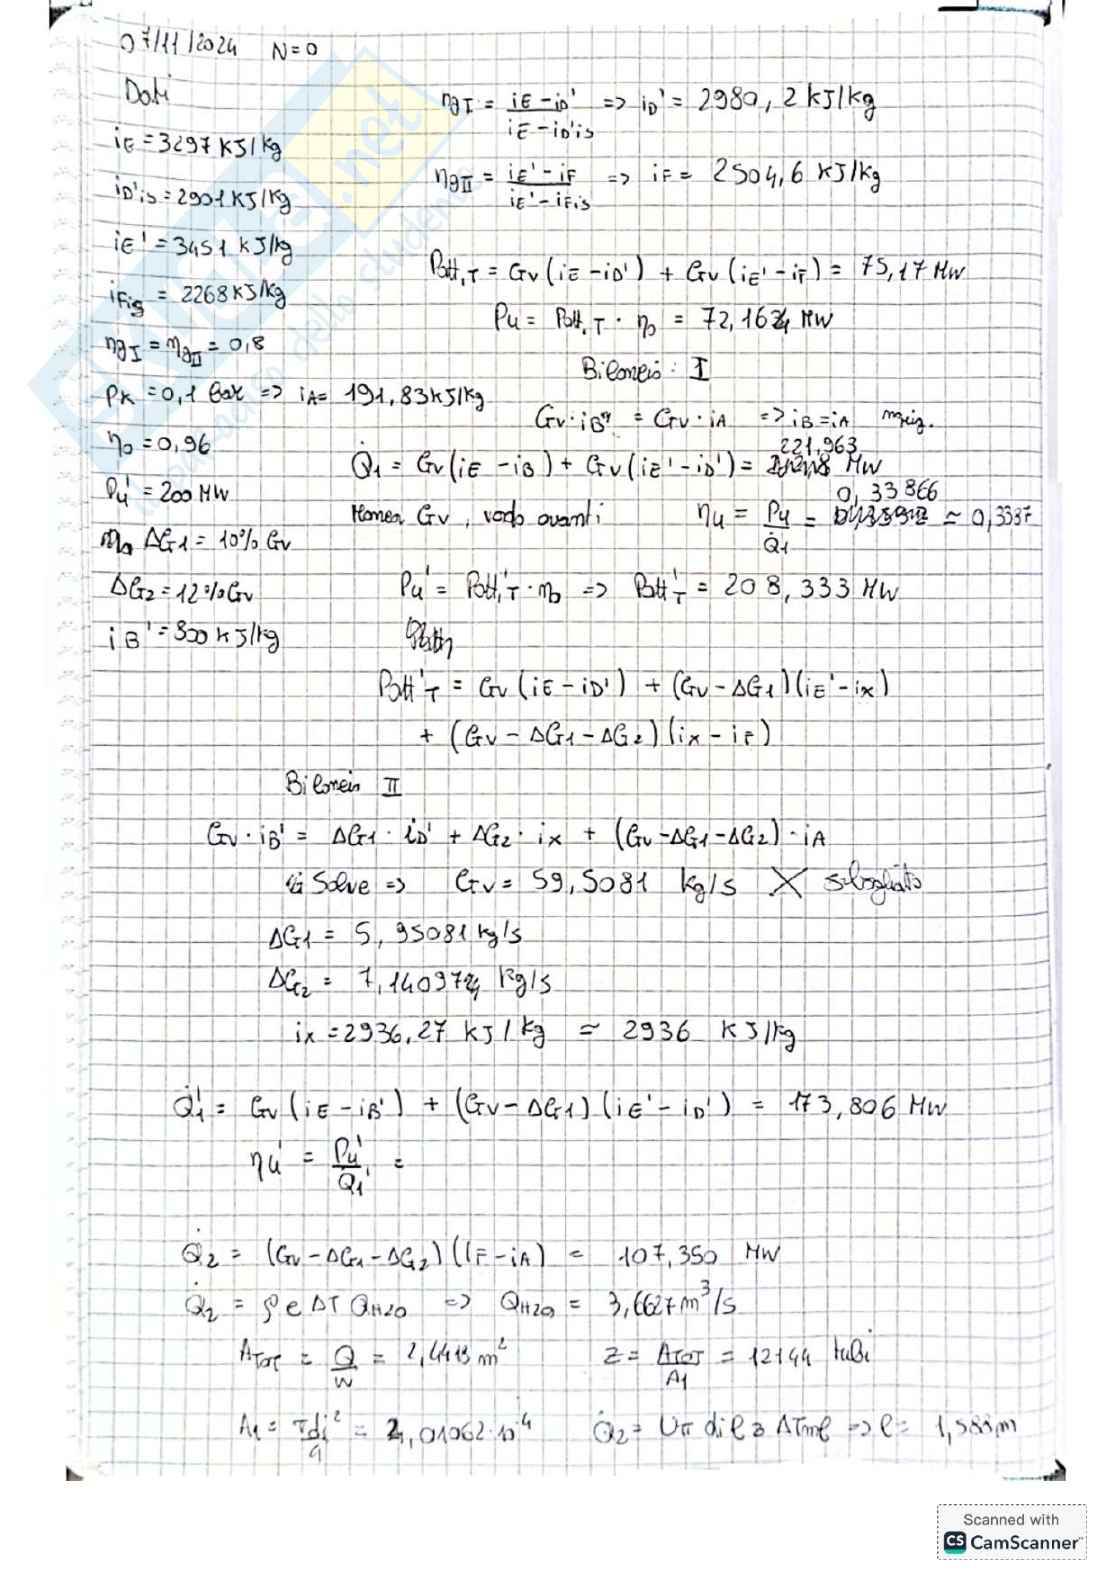 07/11/2024 N=0
Dati
iE = 3297 kJ/kg
iD'is = 2901 kJ/kg
iE' = 3451 kJ/kg
iFis = 2268 kJ/kg
ηgI = ηgII = 0,8
PK = 0,1 bar => iA = 191,83 kJ/kg
η0 = 0,96
Pu' = 200 MW
ΔG1 = 10% Gv
ΔG2 = 12% Gv
iB' = 800 kJ/kg
ηgI = (iE - iD')/(iE - iD'is) => iD' = 2980,2 kJ/kg
ηgII = (iE' - iF)/(iE' - iFis) => iF = 2504,6 kJ/kg
Pott,T = Gv (iE - iD') + Gv (iE' - iF) = 75,17 MW
Pu = Pott,T · η0 = 72,1624 MW
Bilancio: I
Gv · iB" = Gv · iA => iB = iA
Q̇1 = Gv (iE - iB) + Gv (iE' - iD') = 221,963 MW
Gv, vado avanti
ηu = Pu/Q̇1 = 0,33866 ≃ 0,3387
Pu' = Pott,'T · η0 => Pott'T = 208,333 MW
Pott'T = Gv (iE - iD') + (Gv - ΔG1)(iE' - ix)
+ (Gv - ΔG1 - ΔG2)(ix - iF)
Bilancio II
Gv · iB' = ΔG1 · iD' + ΔG2 · ix + (Gv - ΔG1 - ΔG2) · iA
Solve => Gv = 59,5081 kg/s X sbagliato
ΔG1 = 5,95081 kg/s
ΔG2 = 7,140974 kg/s
ix = 2936,27 kJ/kg ≃ 2936 kJ/kg
Q̇1' = Gv (iE - iB') + (Gv - ΔG1)(iE' - iD') = 173,806 MW
ηu' = Pu'/Q1' =
Q̇2 = (Gv - ΔG1 - ΔG2)(iF - iA) = 107,350 MW
Q̇2 = ρ c ΔT QH2O => QH2O = 3,6627 m³/s
ATOT = Q/w = 2,4418 m² Z = ATOT/A1 = 12144 tubi
A1 = πdi²/4 = 2,01062·10⁻⁴ Q̇2 = Uπ di l z ΔTml => l = 1,588 m
Scanned with
CS CamScanner